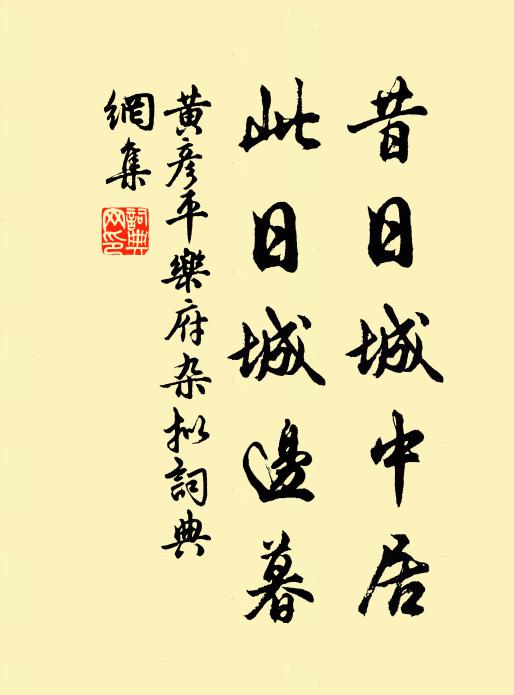 昔日城中居
此日城邊暮
黄彦平樂府杂拟詞典
網集
詞典
网印